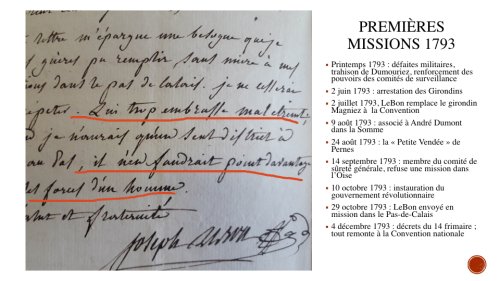 lettre m'épargne une besogne que je
pourrais pu remplir sans nuire à mes
dans le pas de calais. je ne cesserai
répéter. Qui trop embrasse mal etreint,
je n'aurais qu'un seul district à
au pas, il n'en faudrait point davantage
les forces d'un homme.
et fraternité
Joseph LeBon
PREMIÈRES
MISSIONS 1793
▪ Printemps 1793 : défaites militaires,
trahison de Dumouriez, renforcement des
pouvoirs des comités de surveillance
▪ 2 juin 1793 : arrestation des Girondins
▪ 2 juillet 1793, LeBon remplace le girondin
Magniez à la Convention
▪ 9 août 1793 : associé à André Dumont
dans la Somme
▪ 24 août 1793 : la « Petite Vendée » de
Pernes
▪ 14 septembre 1793 : membre du comité de
sûreté générale, refuse une mission dans
l'Oise
▪ 10 octobre 1793 : instauration du
gouvernement révolutionnaire
▪ 29 octobre 1793 : LeBon envoyé en
mission dans le Pas-de-Calais
▪ 4 décembre 1793 : décrets du 14 frimaire ;
tout remonte à la Convention nationale